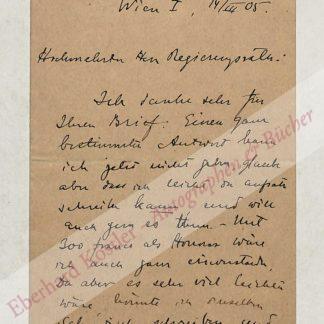 Wien I, 14/III 05.
Hochverehrter Herr Regierungsrath!
Ich danke sehr für
Ihren Brief. Einen ganz
bestimmte Antwort kann
ich jetzt nicht geben, glaube
aber dass ich leicht den Aufsatz
schreiben kann und will
auch gern es thun. Mit
300 francs als Honorar wäre
ich auch ganz einverstanden,
Da aber es sehr viel leichter
wäre, könnte ich denselben
schreiben und
Eberhard Köstler - Autographen & Bücher